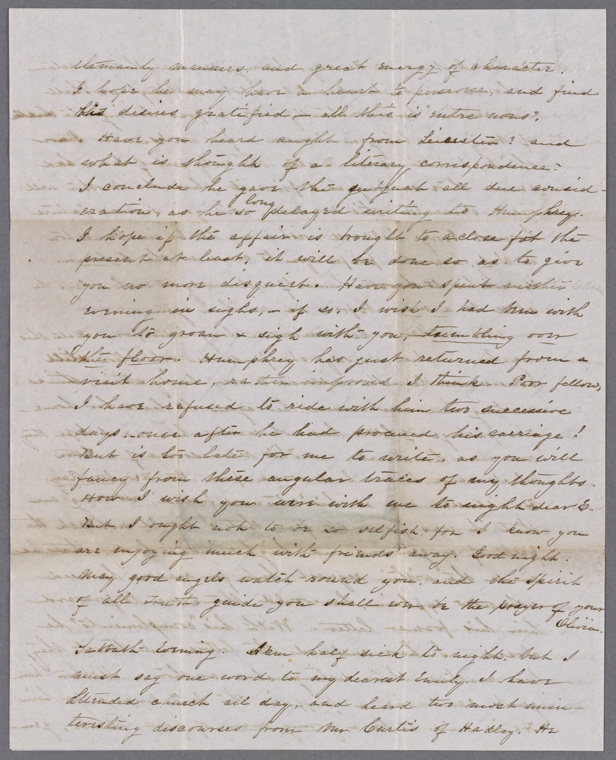 tlemanly manners and great energy of character.
I hope he may have a heart to possess, and find
his desires gratified – all this is "entre nous".
Have you heard aught from Leicester? and
what is thought of a literary correspondence?
I conclude he gave the all due consid-
eration, as he so long delayed writing to Humphrey.
I hope if the affair is brought to a close for the
present at least, it will be done so as to give
you no more disquiet. Have you spent another
evening in sighs, – if so, I wish I had been with
you to groan & sigh with you, – trembling over
the floor. Humphrey has just returned from a
visit home, rather improved I think. Poor fellow,
I have refused to ride with him two successive
days, once after he had procured his carriage!
But is too late for me to write, as you will
fancy from these angular traces of my thoughts –
How I wish you were with me to night dear E–
But I ought not to be so selfish for I know you
are enjoying much with friends away. Good night.
May good angels watch round you, and the spirit
of all truth guide you shall ever be the prayer of your
Olivia.
Sabbath evening. I am half sick to night, but I
must say one word to my dearest Emily. I have
attended church all day, and heard two most unin-
teresting discourses from Mr Curtis of Hadley. He